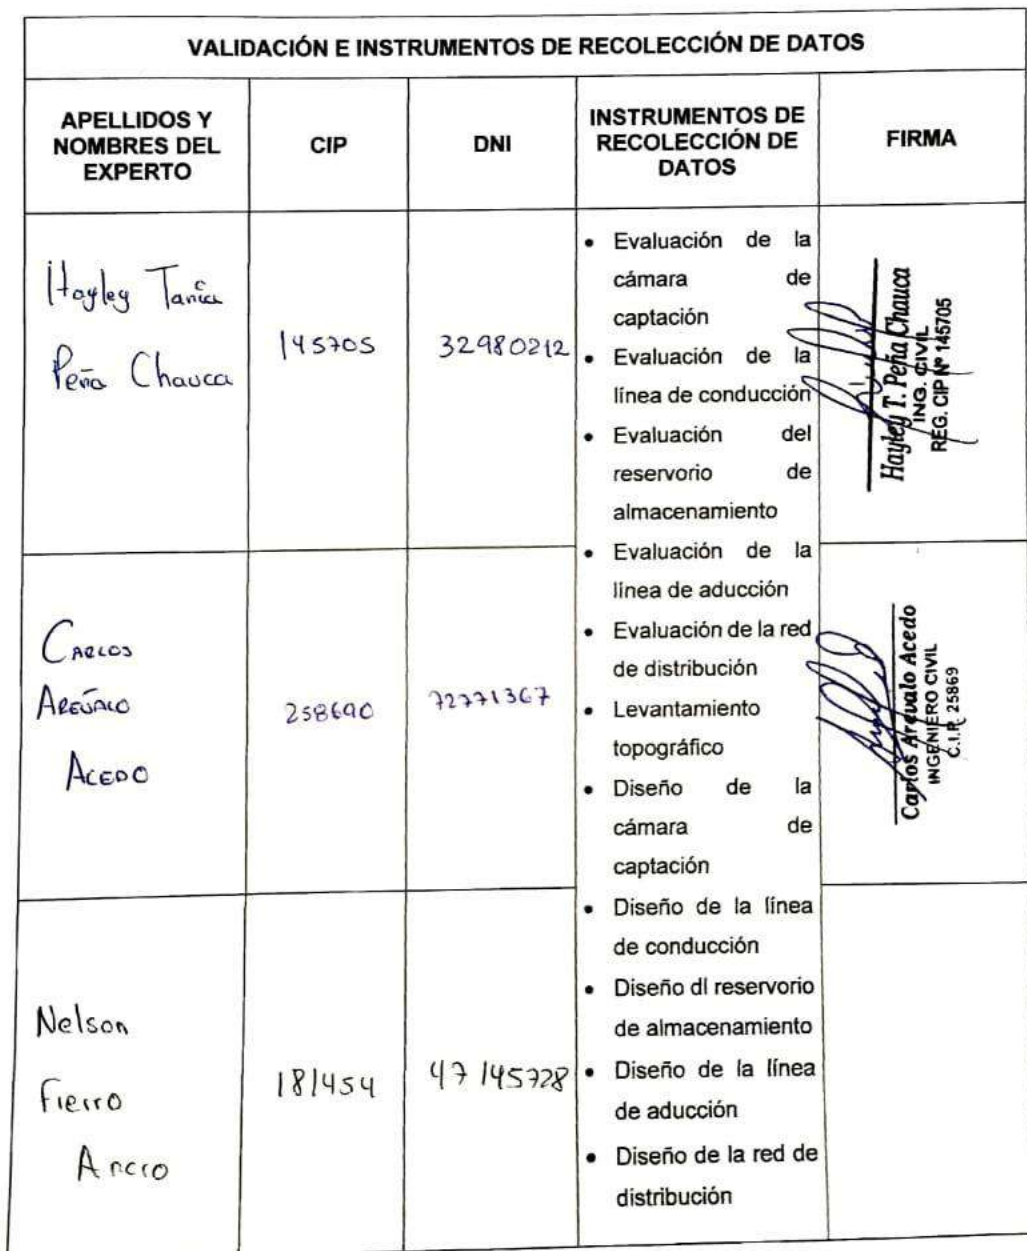 VALIDACIÓN E INSTRUMENTOS DE RECOLECCIÓN DE DATOS
APELLIDOS Y
NOMBRES DEL
EXPERTO
CIP
DNI
INSTRUMENTOS DE
RECOLECCIÓN DE
DATOS
FIRMA
Hayley Tania
Peña Chauca
145705
32980212
• Evaluación de la
cámara de
captación
• Evaluación de la
línea de conducción
• Evaluación del
reservorio de
almacenamiento
• Evaluación de la
línea de aducción
• Evaluación de la red
de distribución
• Levantamiento
topográfico
• Diseño de la
cámara de
captación
• Diseño de la línea
de conducción
• Diseño dl reservorio
de almacenamiento
• Diseño de la línea
de aducción
• Diseño de la red de
distribución
Hayley T. Peña Chauca
ING. CIVIL
REG. CIP Nº 145705
CARLOS
ARÉVALO
ACEDO
258690
72771367
Carlos Arevalo Acedo
INGENIERO CIVIL
C.I.P. 25869
Nelson
Fierro
181454
47145728